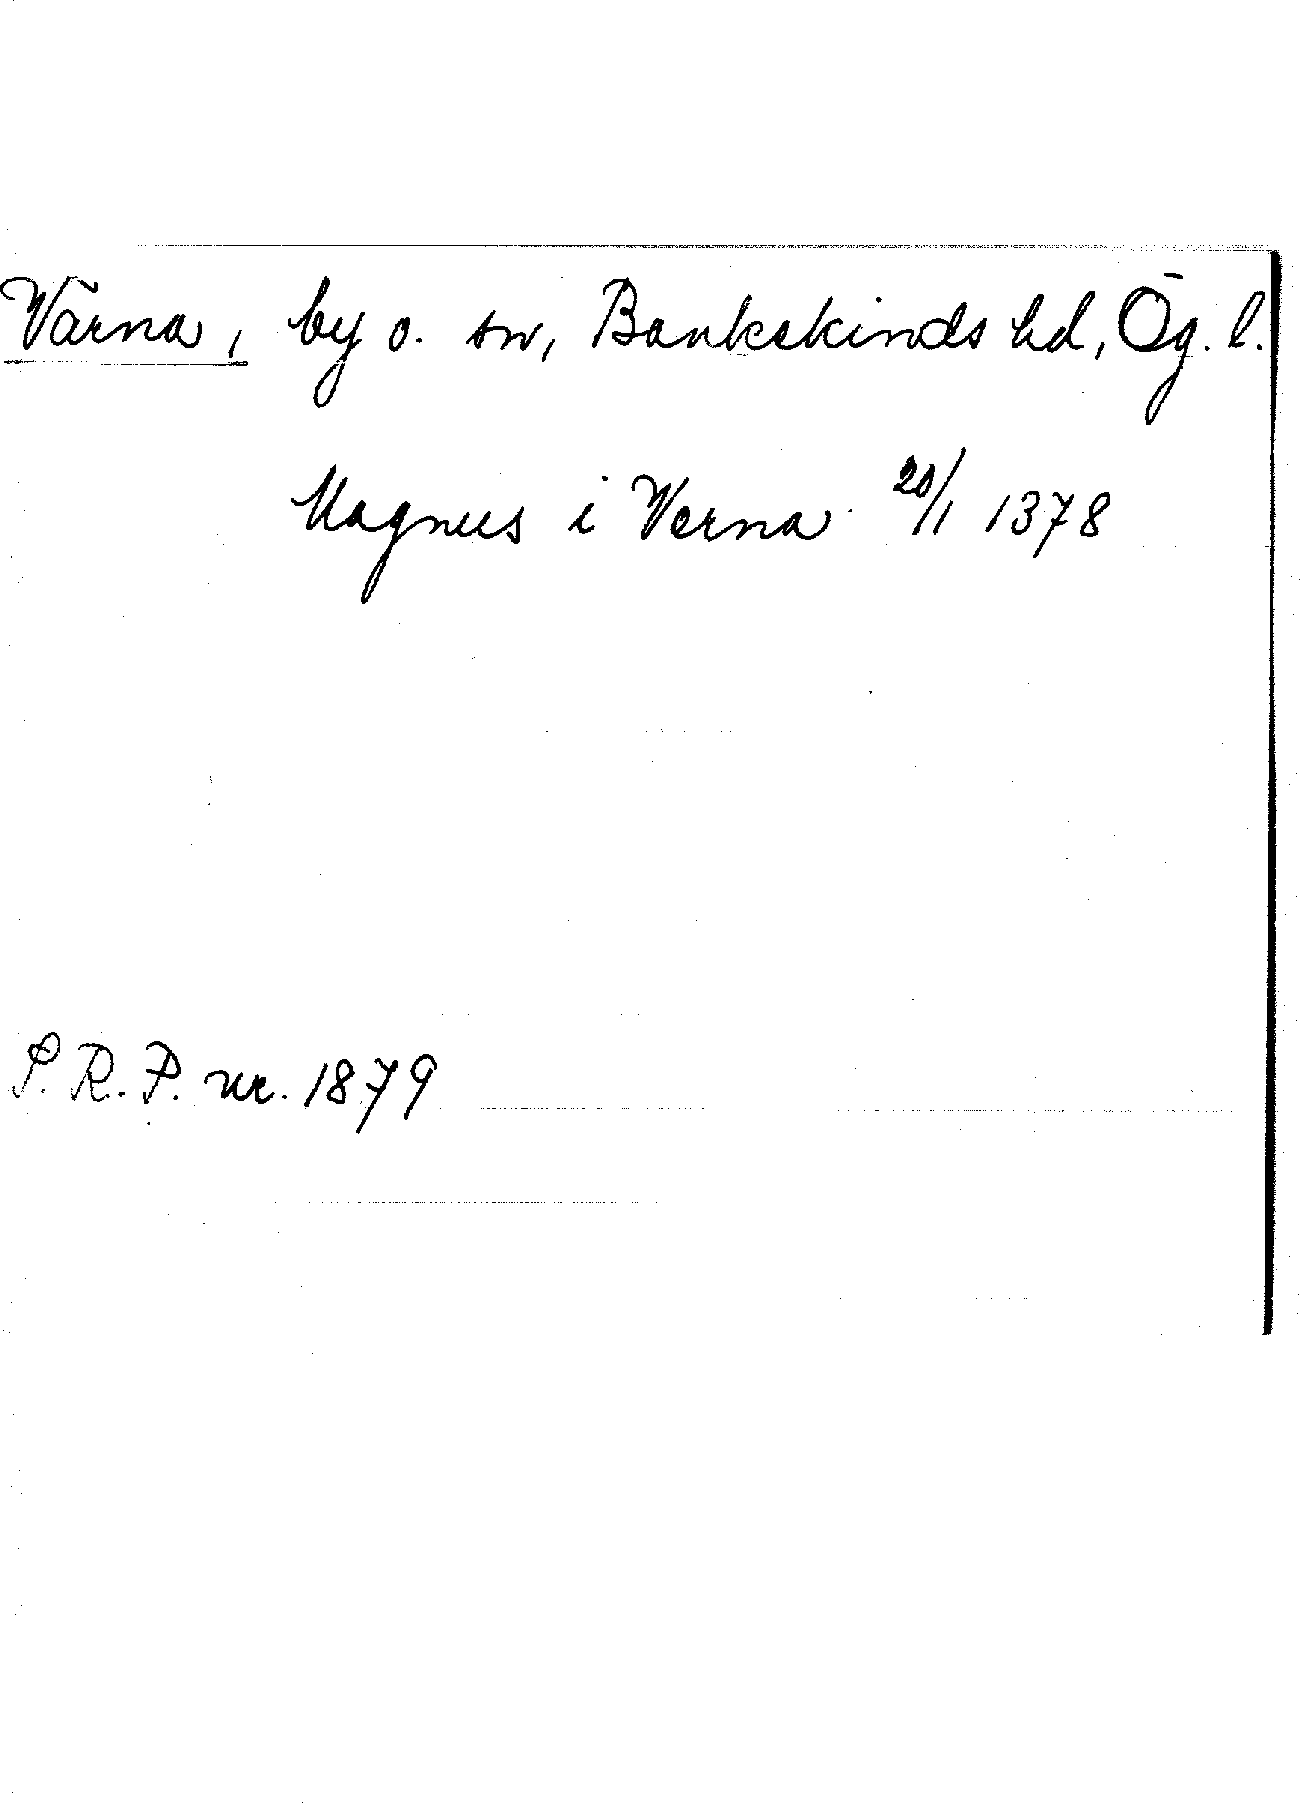 Värna, by o. sn, Bankekinds hd, Ög. l.
Magnus i Verna 20/1 1378
S. R. P. nr. 1879